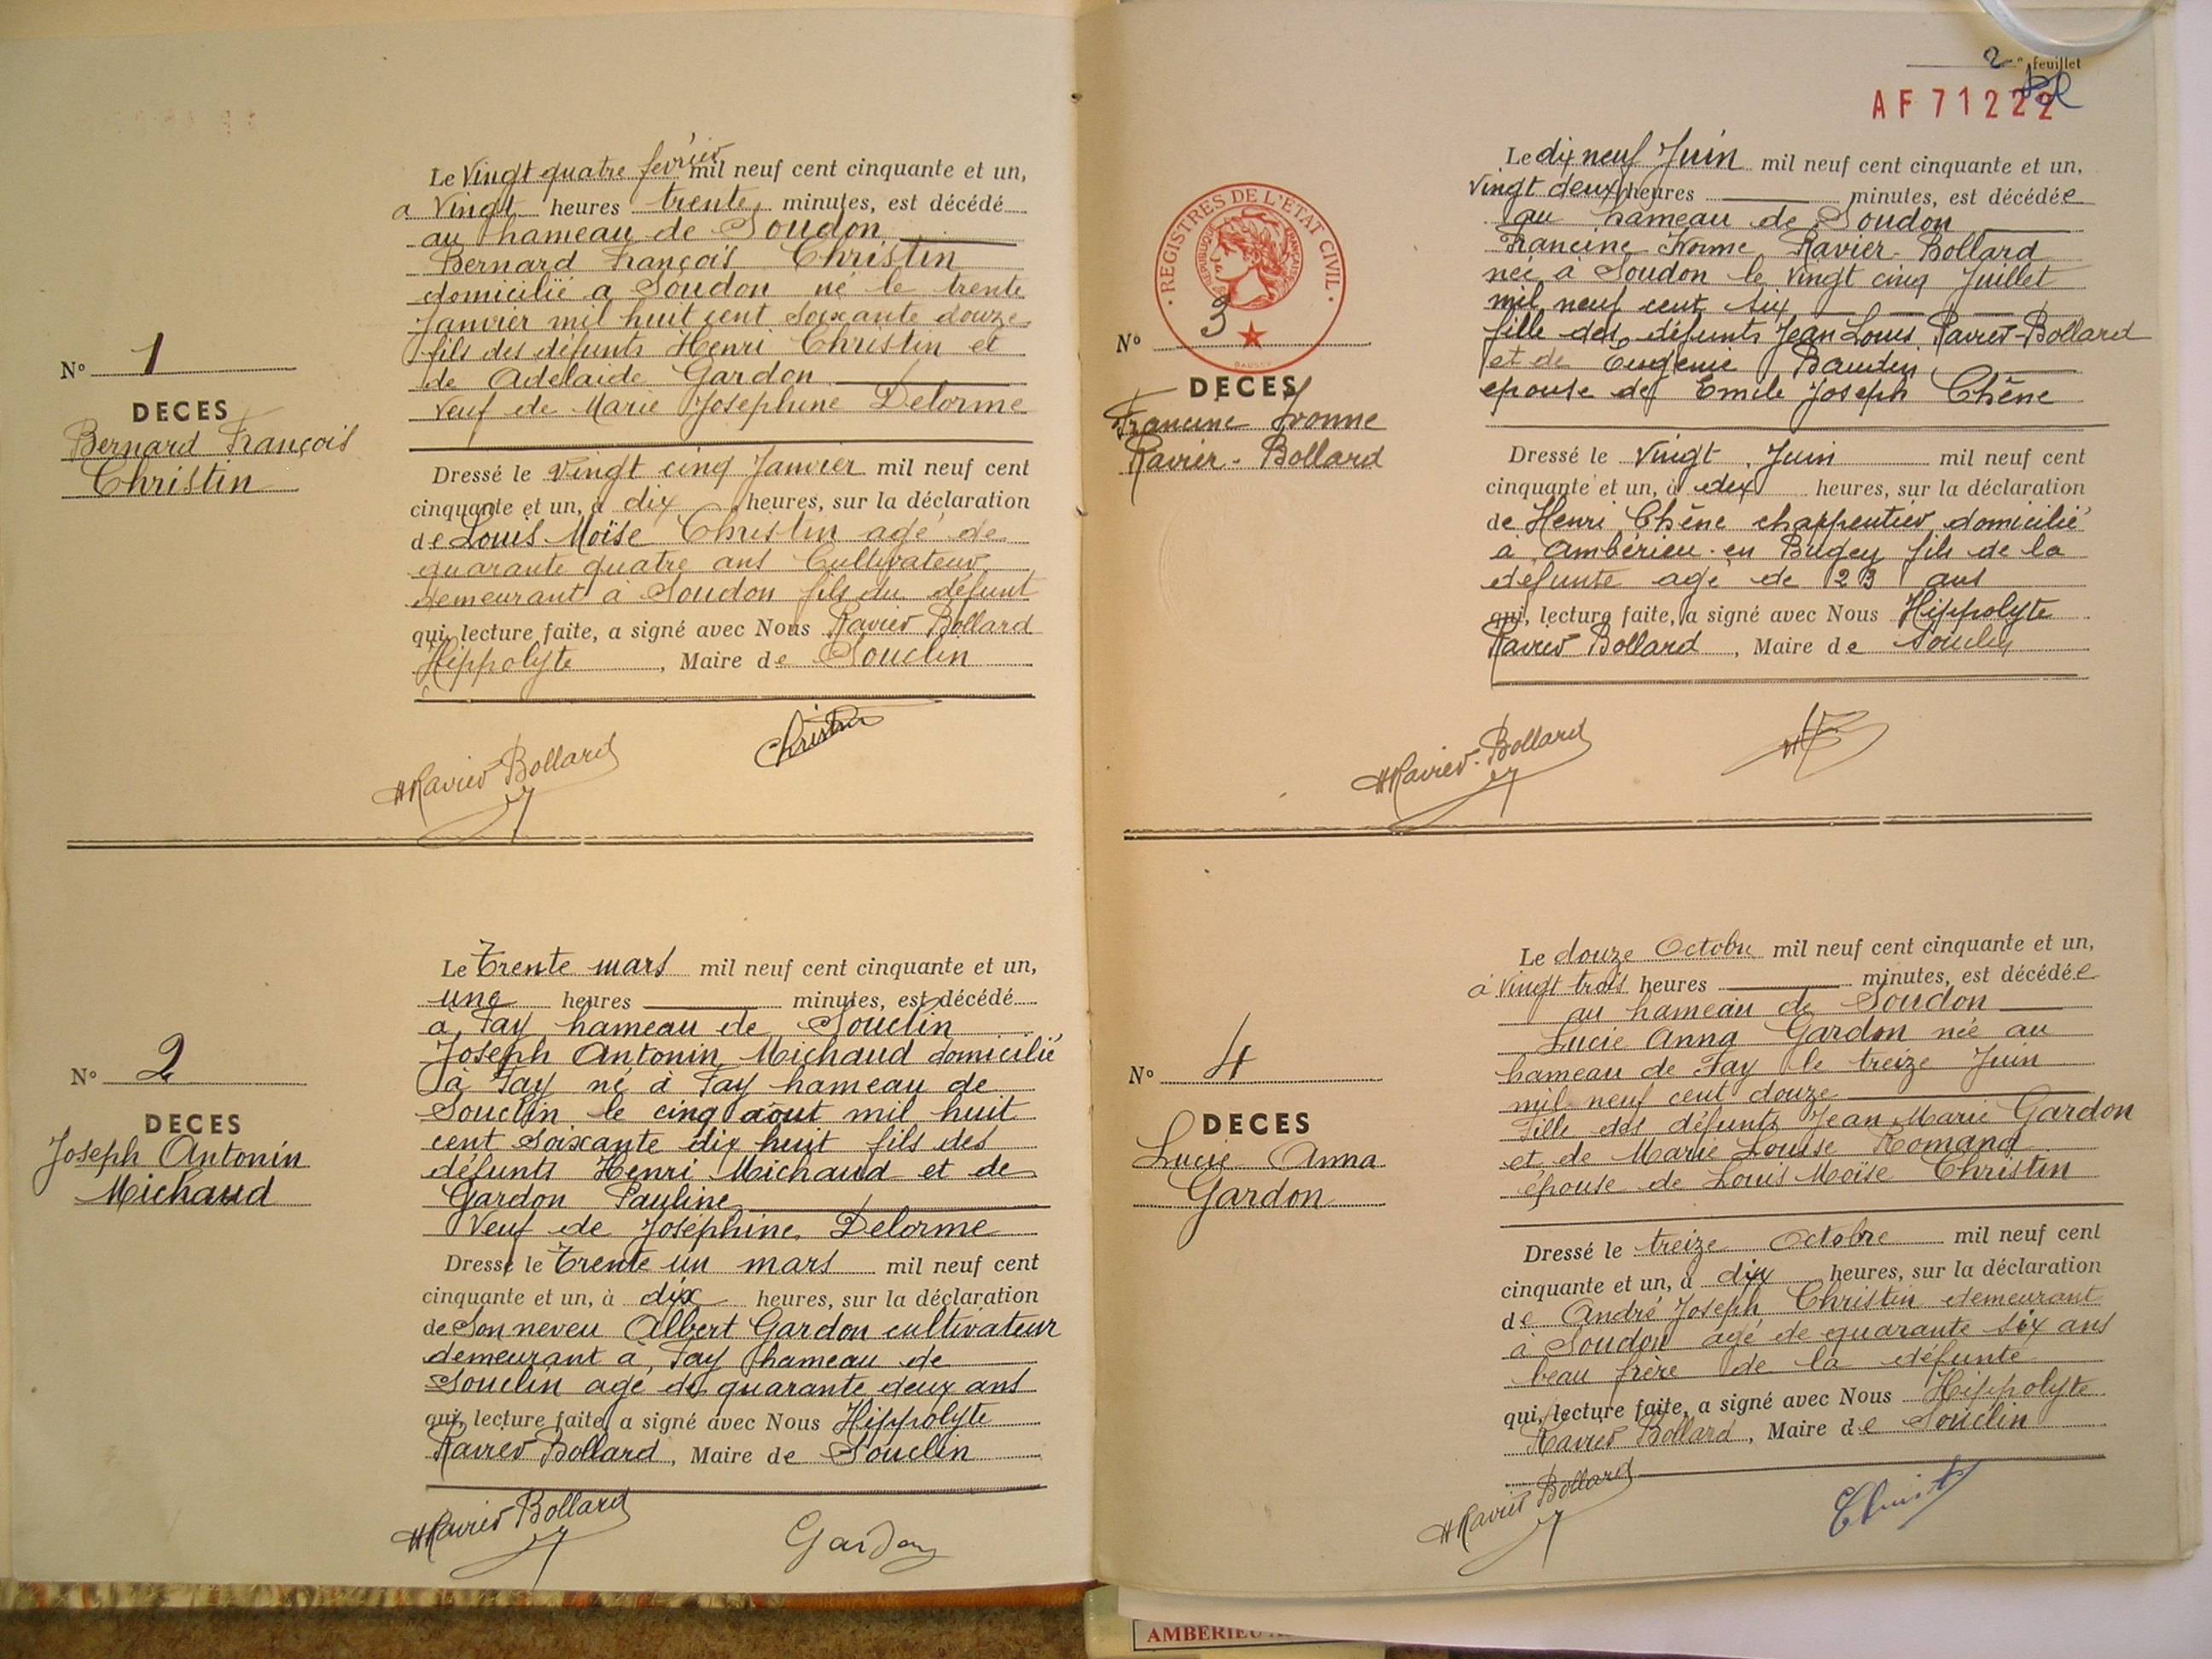 Le Vingt quatre fevrier mil neuf cent cinquante et un,
a Vingt heures trente minutes, est décédé
au hameau de Soudon
Bernard François Christin
domicilié a Soudon né le trente
Janvier mil huit cent soixante douze
fils des défunts Henri Christin et
de Adelaide Gardon
Veuf de Marie Josephine Delorme
N° 1
DECES
Bernard François
Christin
Dressé le Vingt cinq Janvier mil neuf cent
cinquante et un, à dix heures, sur la déclaration
de Louis Moïse Christin agé de
quarante quatre ans Cultivateur
demeurant à Soudon fils du défunt
qui, lecture faite, a signé avec Nous Ravier Bollard
Hippolyte, Maire de Souclin
HRavier Bollard
Christin
Le Trente mars mil neuf cent cinquante et un,
une heures minutes, est décédé
a Fay hameau de Souclin
Joseph Antonin Michaud domicilié
à Fay né à Fay hameau de
Souclin le cinq aout mil huit
cent soixante dix huit fils des
défunts Henri Michaud et de
Gardon Pauline
Veuf de Joséphine Delorme
N° 2
DECES
Joseph Antonin
Michaud
Dressé le Trente un mars mil neuf cent
cinquante et un, à dix heures, sur la déclaration
de Son neveu Albert Gardon cultivateur
demeurant à Fay hameau de
Souclin agé de quarante deux ans
qui, lecture faite, a signé avec Nous Hippolyte
Ravier Bollard, Maire de Souclin
HRavier Bollard
Gardon
2e feuillet
AF 71222
Le dix neuf Juin mil neuf cent cinquante et un,
Vingt deux heures minutes, est décédée
au hameau de Soudon
Francine Ivonne Ravier-Bollard
née à Soudon le Vingt cinq Juillet
mil neuf cent six
fille des défunts Jean Louis Ravier-Bollard
et de Eugenie Baudin
epouse de Emile Joseph Chêne
REGISTRES DE L'ETAT CIVIL
REPUBLIQUE FRANÇAISE
N° 3
DECES
Francine Ivonne
Ravier-Bollard
Dressé le Vingt Juin mil neuf cent
cinquante et un, à dix heures, sur la déclaration
de Henri Chêne charpentier domicilié
à Ambérieu-en Bugey fils de la
défunte agé de 23 ans
qui, lecture faite, a signé avec Nous Hippolyte
Ravier Bollard, Maire de Souclin
HRavier-Bollard
Le douze Octobre mil neuf cent cinquante et un,
à Vingt trois heures minutes, est décédée
au hameau de Soudon
Lucie Anna Gardon née au
hameau de Fay le treize Juin
mil neuf cent douze
Fille des défunts Jean Marie Gardon
et de Marie Louise Romand
épouse de Louis Moïse Christin
N° 4
DECES
Lucie Anna
Gardon
Dressé le treize Octobre mil neuf cent
cinquante et un, à dix heures, sur la déclaration
de André Joseph Christin demeurant
à Soudon agé de quarante six ans
beau frère de la défunte
qui, lecture faite, a signé avec Nous Hippolyte
Ravier Bollard, Maire de Souclin
HRavier Bollard
AMBERIEU